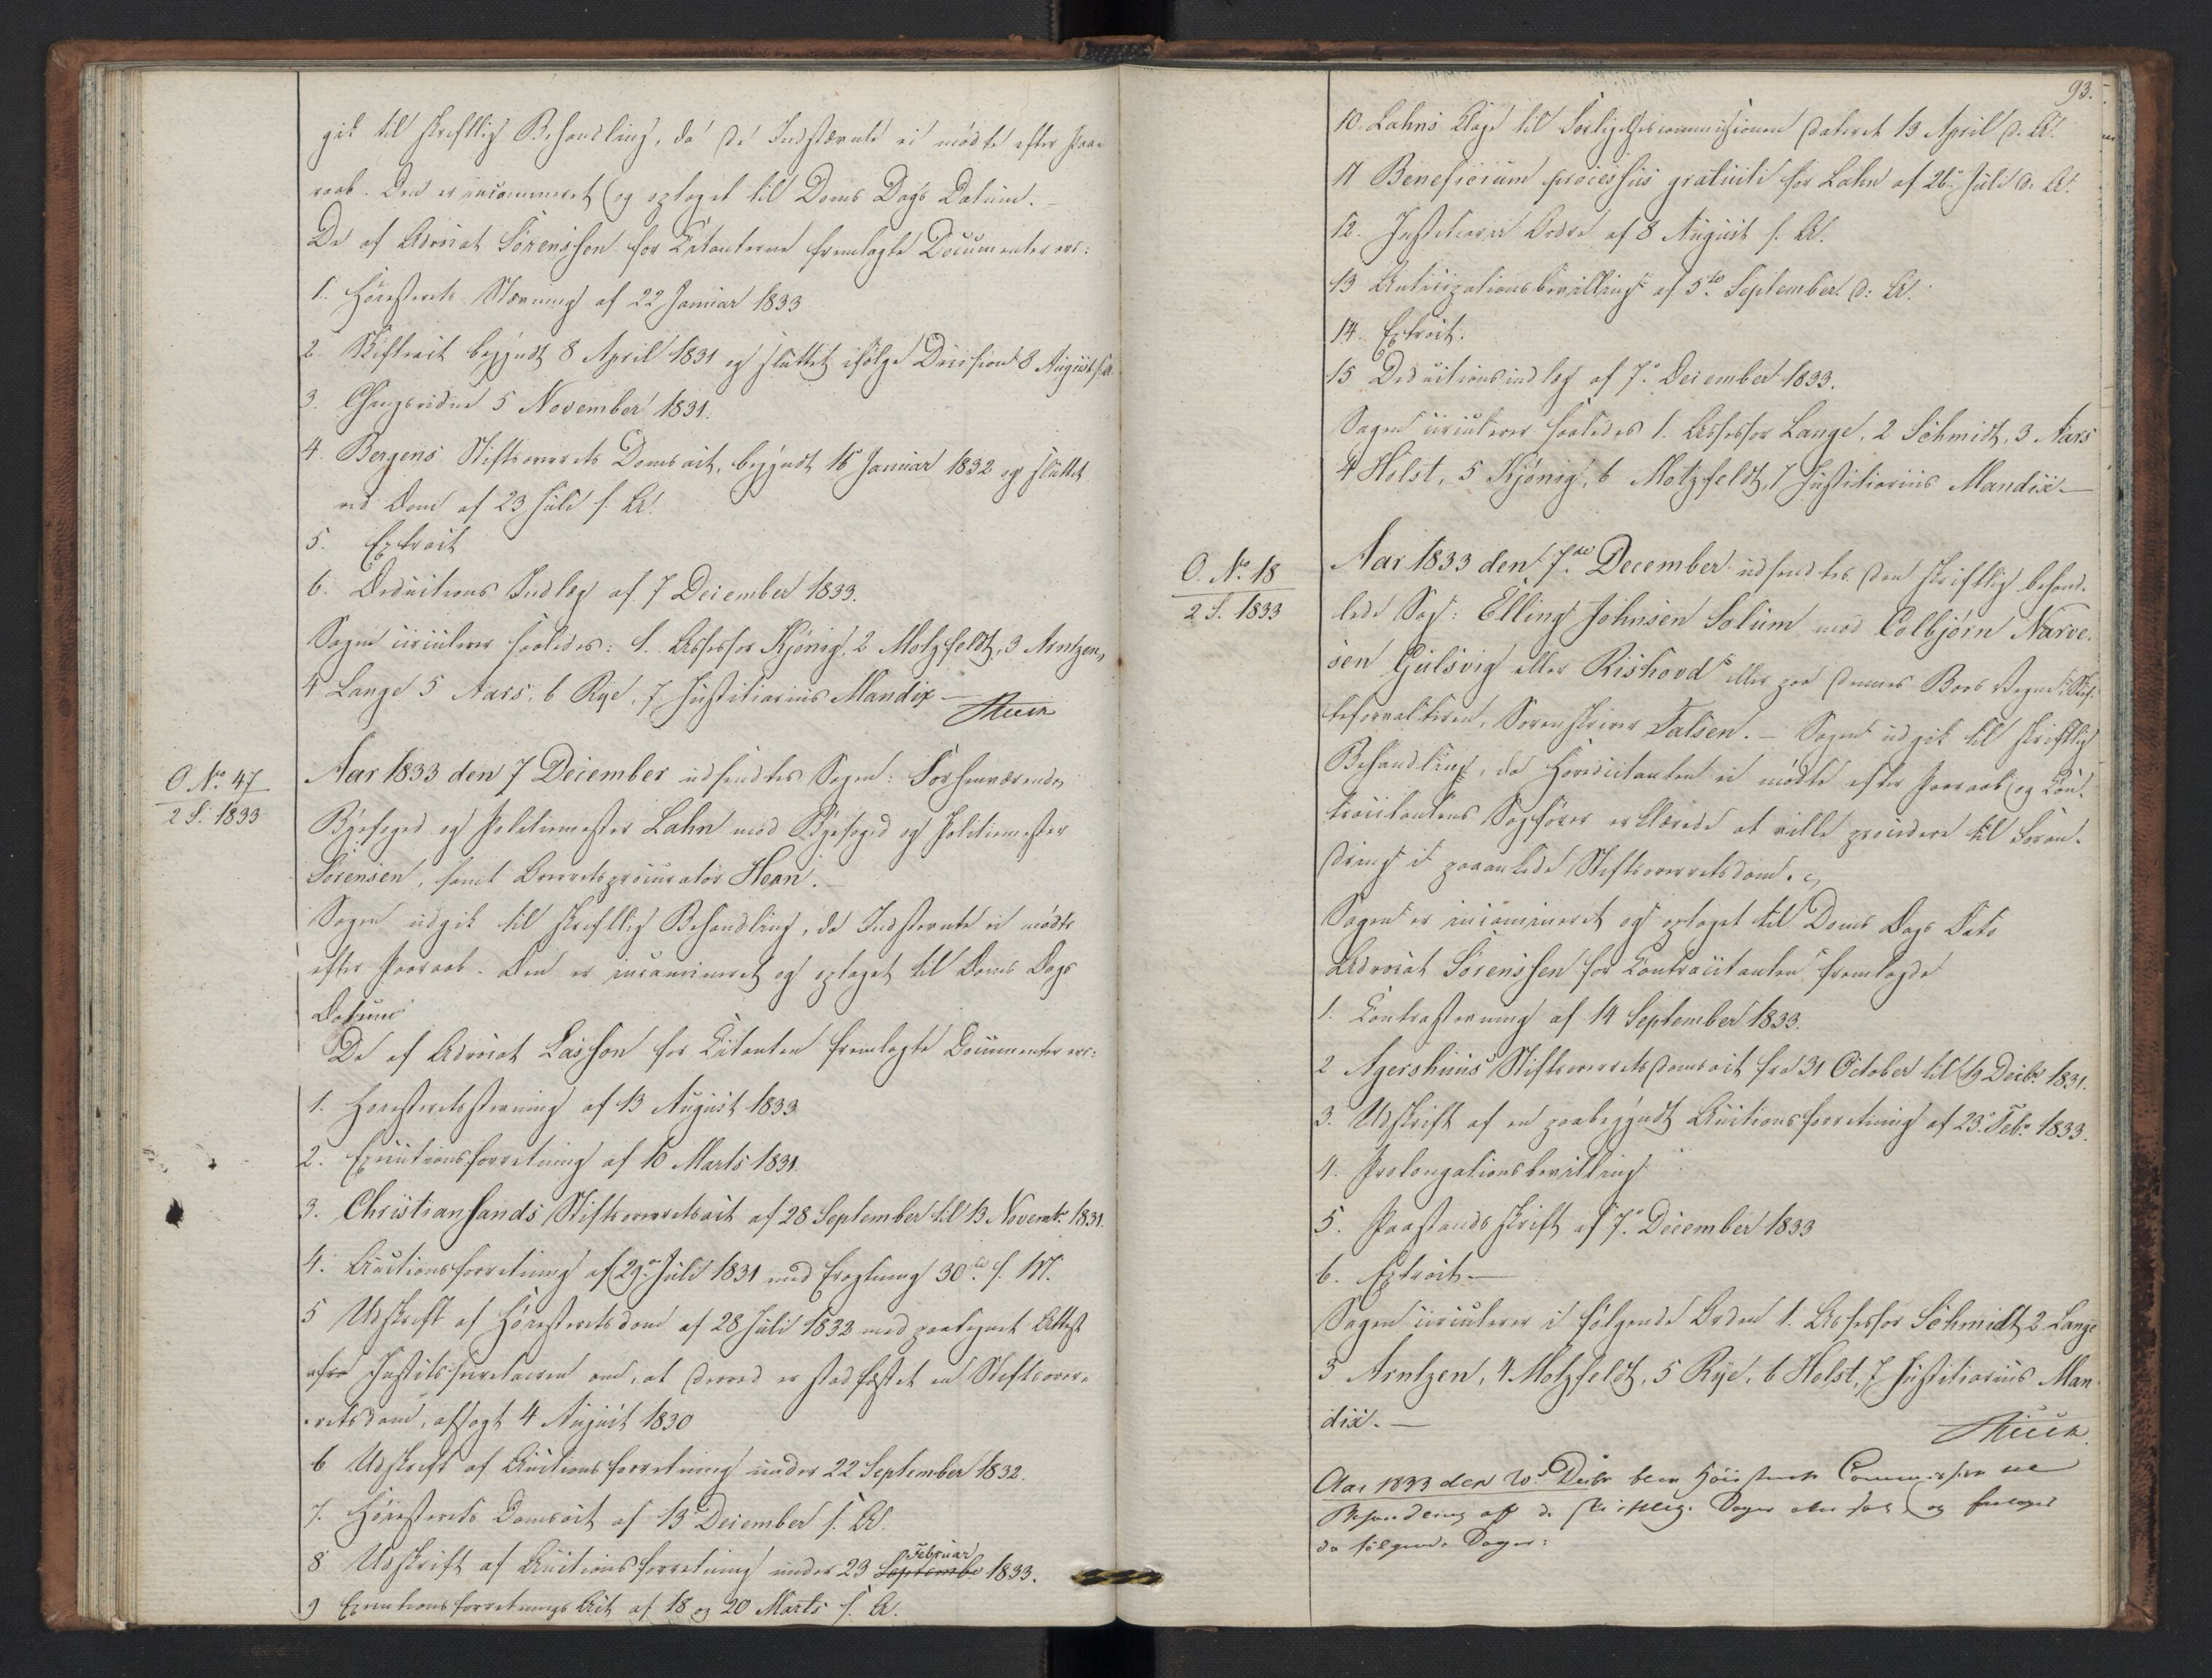 gik til skriftlig Behandling, da de Indstævnte ei mødte efter Paa-
raab. Den er incamineret og optaget til Doms Dags Datum.
De af Advocat Sörenssen for Citanterne fremlagte Documenter ere:
1. Höiesterets Stævning af 22 Januar 1833
2. Skifteact begyndt 8 April 1831 og sluttet ifölge Decision 8 August s. A.
3. 5 November 1831.
4. Bergens Stiftsoverrets Domsact, begyndt 16 Januar 1832 og sluttet
ved Dom af 23 Juli s. A.
5. Extract
6. Deductions Indlæg af 7 December 1833.
Sagen circulerer saaledes: 1. Assessor Kjönig, 2 Motzfeldt, 3 Arntzen,
4 Lange 5 Aars, 6 Rye, 7 Justitiarius Mandix —
O. No. 47
2 S. 1833
Aar 1833 den 7 December udsendtes Sagen: Forhenværende
Byefoged og Politiemester Lahn mod Byefoged og Politiemester
Sörensen, samt Overretsprocurator Hean.
Sagen udgik til skriftlig Behandling, da Indstevnte ei mødte
efter Paaraab. Den er incamineret og optaget til Doms Dags
Datum
De af Advocat Lasson for Citanten fremlagte Documenter ere:
1. Höiesteretsstevning af 13 August 1833
2. Executionsforretning af 16 Marts 1831.
3. Christiansands Stiftsoverretsact af 28 September til 13 Novembr. 1831.
4. Auctionsforretning af 29. Juli 1831 med 30te s. M.
5 Udskrift af Höiesteretsdom af 28 Juli 1832 med paategnet Attest
fra Justitssecretairen om, at derved er stadfæstet en Stiftsover-
retsdom, afsagt 4 August 1830
6 Udskrift af Auctionsforretning under 22 September 1832.
7. Höiesterets Domsact af 13 December s. A.
8 Udskrift af Auctionsforretning under 23 Septembr Februar 1833.
9 Executionsforretnings Act af 18 og 20 Marts s. A.
93.
10. Lahns Klage til Forligelsescommissionen dateret 13 April d. A.
11 Beneficium processus gratuiti for Lahn af 26. Juli d. A.
12. Justitiarii Ordre af 8 August s. A.
13 Anticipationsbevilling af 5te September d. A.
14. Extract.
15 Deductionsindlæg af 7. December 1833.
Sagen circulerer saaledes 1. Assessor Lange, 2 Schmidt, 3 Aars
4 Holst, 5 Kjönig, 6 Motzfeldt, 7 Justitiarius Mandix —
O. No. 18
2 S. 1833
Aar 1833 den 7de December udsendtes den skriftlig behand-
lede Sag: Elling Johnsen Solum mod Colbjörn Narve-
sen Gulsvig eller Rishovd eller paa dennes Boes Vegne, Skif-
teforvalteren, Sorenskriver Falsen. — Sagen udgik til skriftlig
Behandling, da Hovedcitanten ei mødte efter Paaraab og Con-
tracitantens Sagförer erklærede at ville procedere til Foran-
dring i paaankede Stiftsoverretsdom.
Sagen er incamineret og optaget til Doms Dags Dato
Advocat Sörenssen for Contracitanten fremlagde
1. Contrastevning af 14 September 1833.
2 Agershuus Stiftsoverretsdomsact fra 31 October til 19 Decbr. 1831.
3. Udskrift af en paabegyndt Auctionsforretning af 23. Febr. 1833.
4. Prolongationsbevilling
5. Paastandsskrift af 7. December 1833
6. Extract —
Sagen circulerer i fölgende Orden 1. Assessor Schmidt, 2 Lange
3 Arntzen, 4 Motzfeldt, 5 Rye, 6 Holst, 7 Justitiarius Man-
dix. —
Aar 1833 den Decbr blev Höiesterets
Behandling af de skriftlige Sager og foretaget
de fölgende Sager: